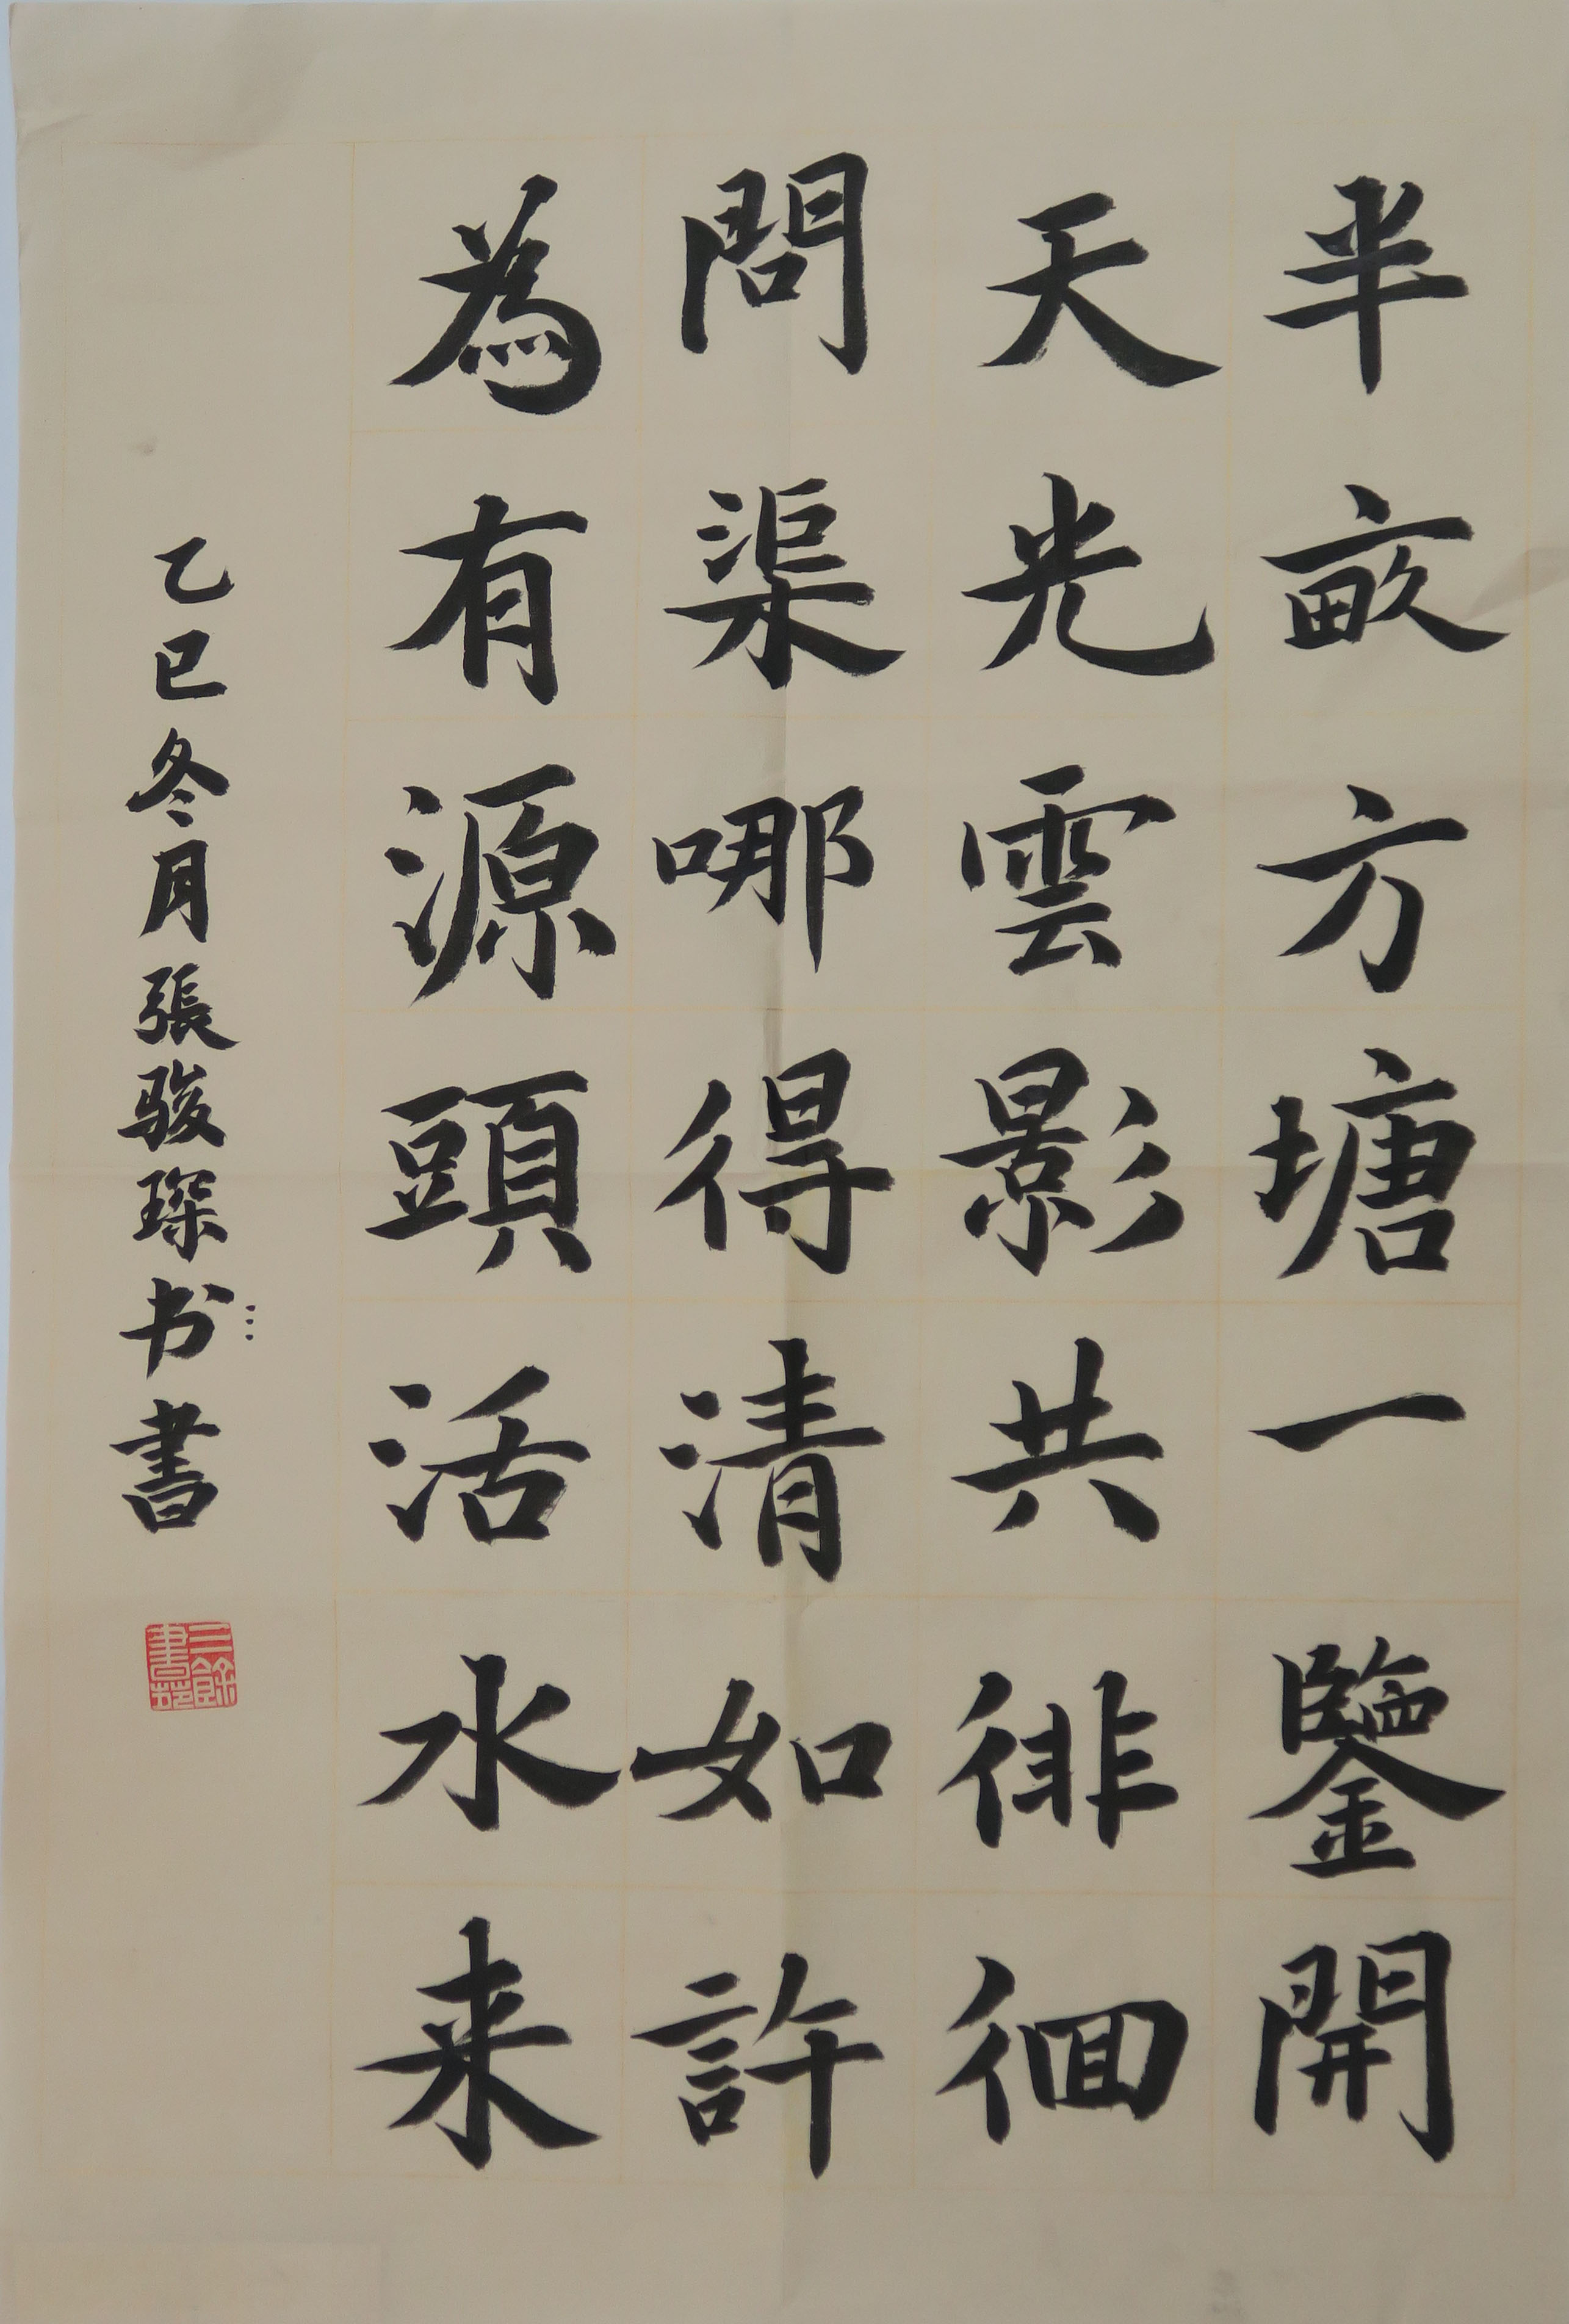 半畝方塘一鑒開
天光雲影共徘徊
問渠哪得清如許
為有源頭活水来
乙巳冬月張骏琛书書
三餘書坊